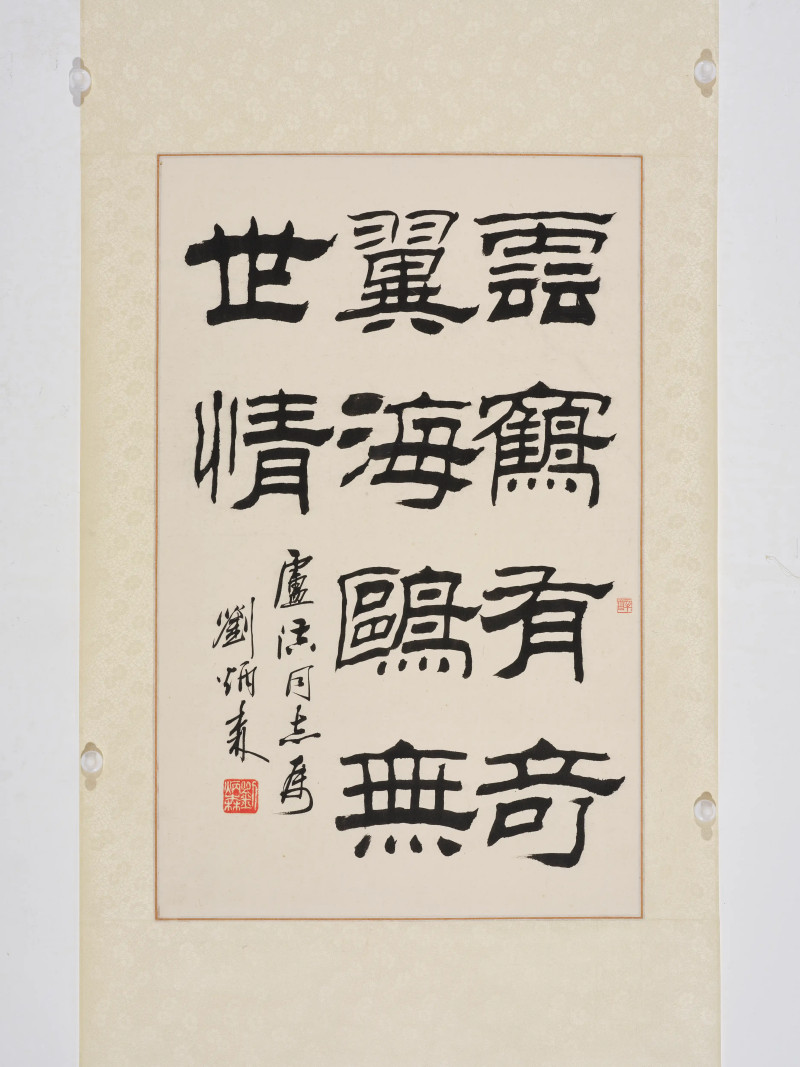 雲鶴有奇
翼海鷗無
世情
盧洪同志屬
劉炳森
劉炳森